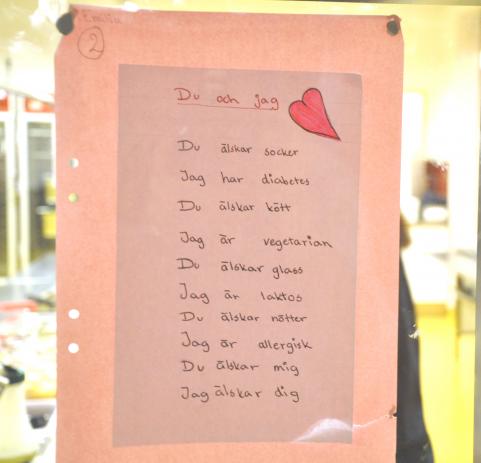 Emilia
2
Du och jag
Du älskar socker
Jag har diabetes
Du älskar kött
Jag är vegetarian
Du älskar glass
Jag är laktos
Du älskar nötter
Jag är allergisk
Du älskar mig
Jag älskar dig